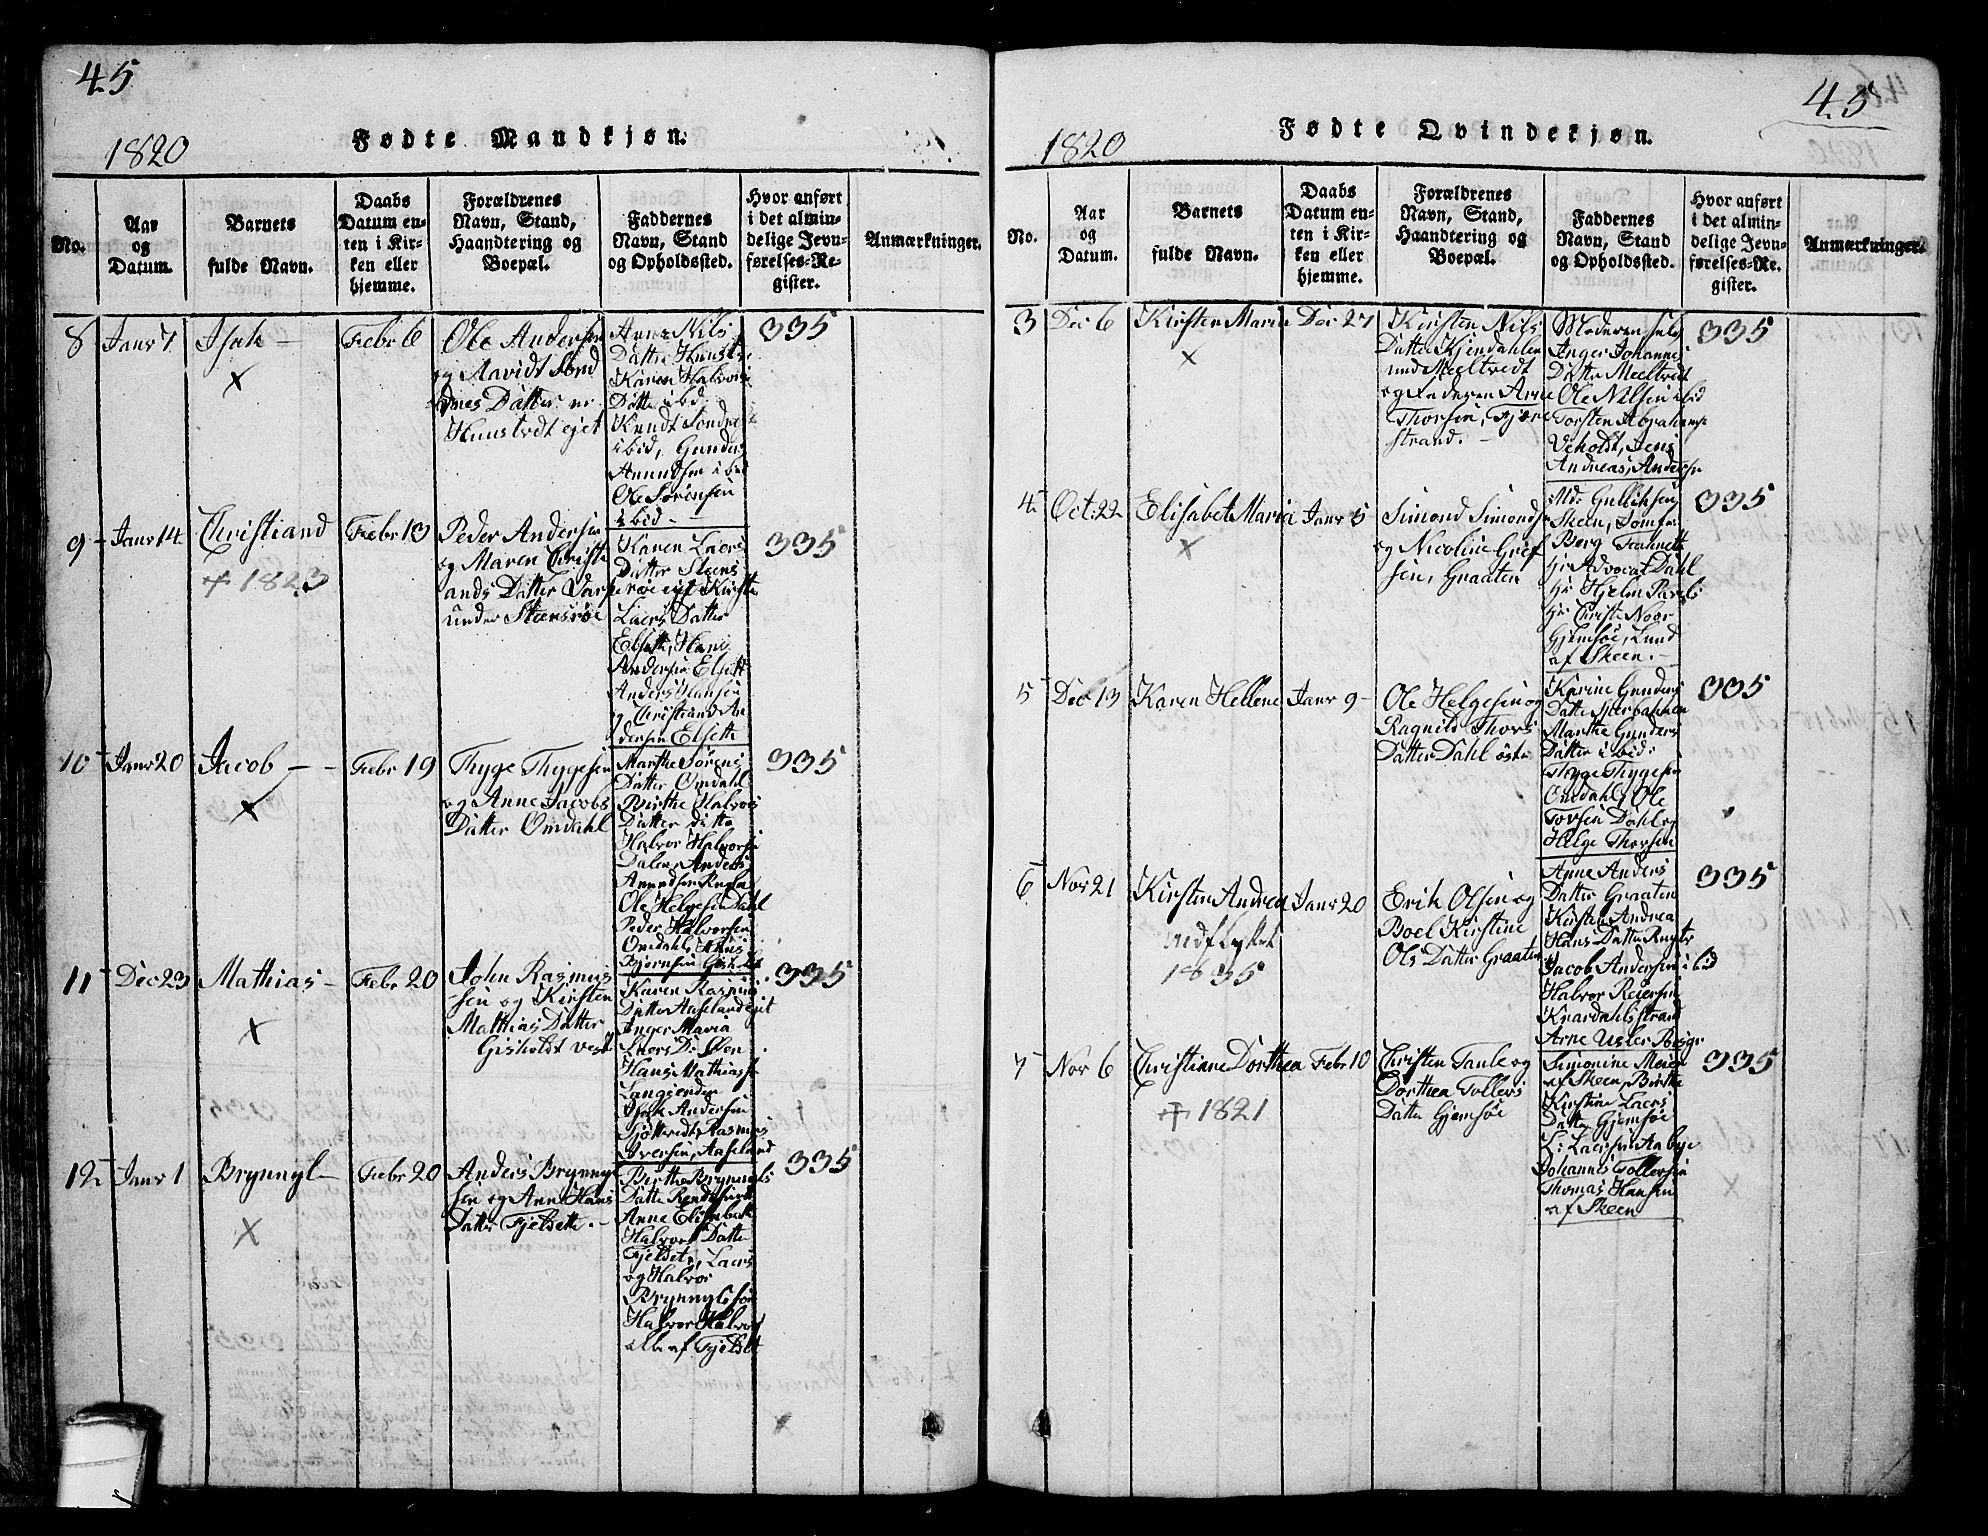 45
1820
Fødte Mandkjøn.
No.
Aar
og
Datum.
Barnets
fulde Navn.
Daabs
Datum en-
ten i Kir-
ken eller
hjemme.
Forældrenes
Navn, Stand,
Haandtering og
Boepæl.
Faddernes
Navn, Stand
og Opholdssted.
Hvor anført
i det almin-
delige Jevn-
førelses-Re-
gister.
Anmærkninger.
8
Janr 7
Isak –
Febr 6
Ole Andersen
og Aavidt Sond
Datter
Anne Nils
Datter
Karen Halvors
Datter ibid
Knudt Sondre
ibid, Gunder
Amundsen ibid
Ole Sørensen
ibid –
335
9
Janr 14
Christiand
+ 1823
Febr 13
Peder Andersen
og Maren Christi
ands Datter
under Steensrøe
Karen Laers
Datter Steens
røe eiet Kirsten
Laers Datter
Elsette, Hans
Andersen Elsett
Anders Hansen
Christiand An
dersen Elsette
335
10
Janr 20
Jacob –
Febr 19
Thyge Thygesen
og Anne Jacobs
Datter Omdahl
Marthe Sørens
Datter Omdahl
Birthe Halvors
Datter ditto
Halvor Halvorsen
Dalen, Anders
Amundsen
Ole Helgesen Dahl
Peder Halvorsen
Omdahl, Hans
Bjørnsen Gisholt
335
11
Dec 23
Mathias –
X
Febr 20
John Rasmus
sen og Kirsten
Mathias Datter
Gisholdt vest
Karen Rasmus
Datter Aaseland
Inger Maria
Laers D:
Hans Mathiass
Langjendes
Isak Andersen
Rasmus
Iversen, Aaseland
335
12
Janr 1
Brynnyl –
X
Febr 20
Anders Brynnyl
sen og Anne Hans
Datter Fjelsette. –
Birthe Brynnyls
Datter
Anne Elisabeth
Halvors Datter
Fjelset, Laers
og Halvor
Brynnylsen
Halvor Halvors
alle af Fjelset
335
45
1820
Fødte Qvindekjøn.
No.
Aar
og
Datum.
Barnets
fulde Navn.
Daabs
Datum en-
ten i Kir-
ken eller
hjemme.
Forældrenes
Navn, Stand,
Haandtering og
Boepæl.
Faddernes
Navn, Stand
og Opholdssted.
Hvor anført
i det almin-
delige Jevn-
førelses-Re-
gister.
Anmærkninger.
3
Dec 6
Kirsten Maria
Dec 27
Kirsten Nils
Datter Kjendahlen
und Meeltvedt
og Anderen Arne
Thorsen, Fjære
strand. –
Moderen selv
Inger Johannes
Datter Meeltvedt
Ole Nilsen ibid
Torsten Abrahams
Veholdt, Jens
Andreas Anders
335
4
Oct. 22
Elisabet Maria
Janr 5
Simond Simonds
og Nicoline Gref
sen, Graaten
Md: Gulliksen
Skeen, Jomfr
Berg
Hr Advocat Dahl
Hr Hjelm
Hr Christ Noer
Gjemsøe, Lund
af Skeen. –
335
5
Dec 13
Karen Hellene
Janr 9 –
Ole Helgesen og
Ragnild Thors
Datter Dahl østr
Karine Gunders
Datter
Marthe Gunders
Datter ibid:
Thyge Thygesen
Omdahl, Ole
Torsen Dahl og
Helge Thorsen
335
6
Nov 21
Kirsten Andrea
udflyttet
1835
Janr 20
Erik Olsen og
Boel Kirstine
Ols Datter Graaten
Anne Anders
Datter Graaten
Kirsten Andrea
Hans Datter
Jacob Andersen ibid
Halvor Reiersen
Knardahlsstrand
Arne
335
7
Nov 6
Christiane Dorthea
+ 1821
Febr 10
Christen Taule og
Dorthea Tollers
Datter Gjemsøe
Simonine Meier
af Skeen, Birthe
Kirstine Laers
Datter Gjemsøe
S: Laersen Aabye
Johannes Tollersen
Thomas Hansen
af Skeen
335